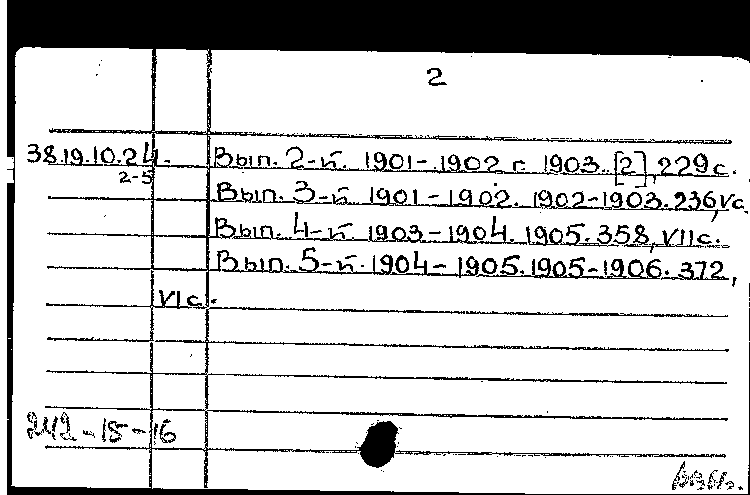 2
38.19.10.24. Вып. 2-й. 1901-1902 г. 1903. [2], 229 с.
2-5
Вып. 3-й 1901-1902. 1902-1903. 236, Vс.
Вып. 4-й 1903-1904. 1905. 358, VII с.
Вып. 5-й. 1904-1905. 1905-1906. 372,
VI с.
242-15-16